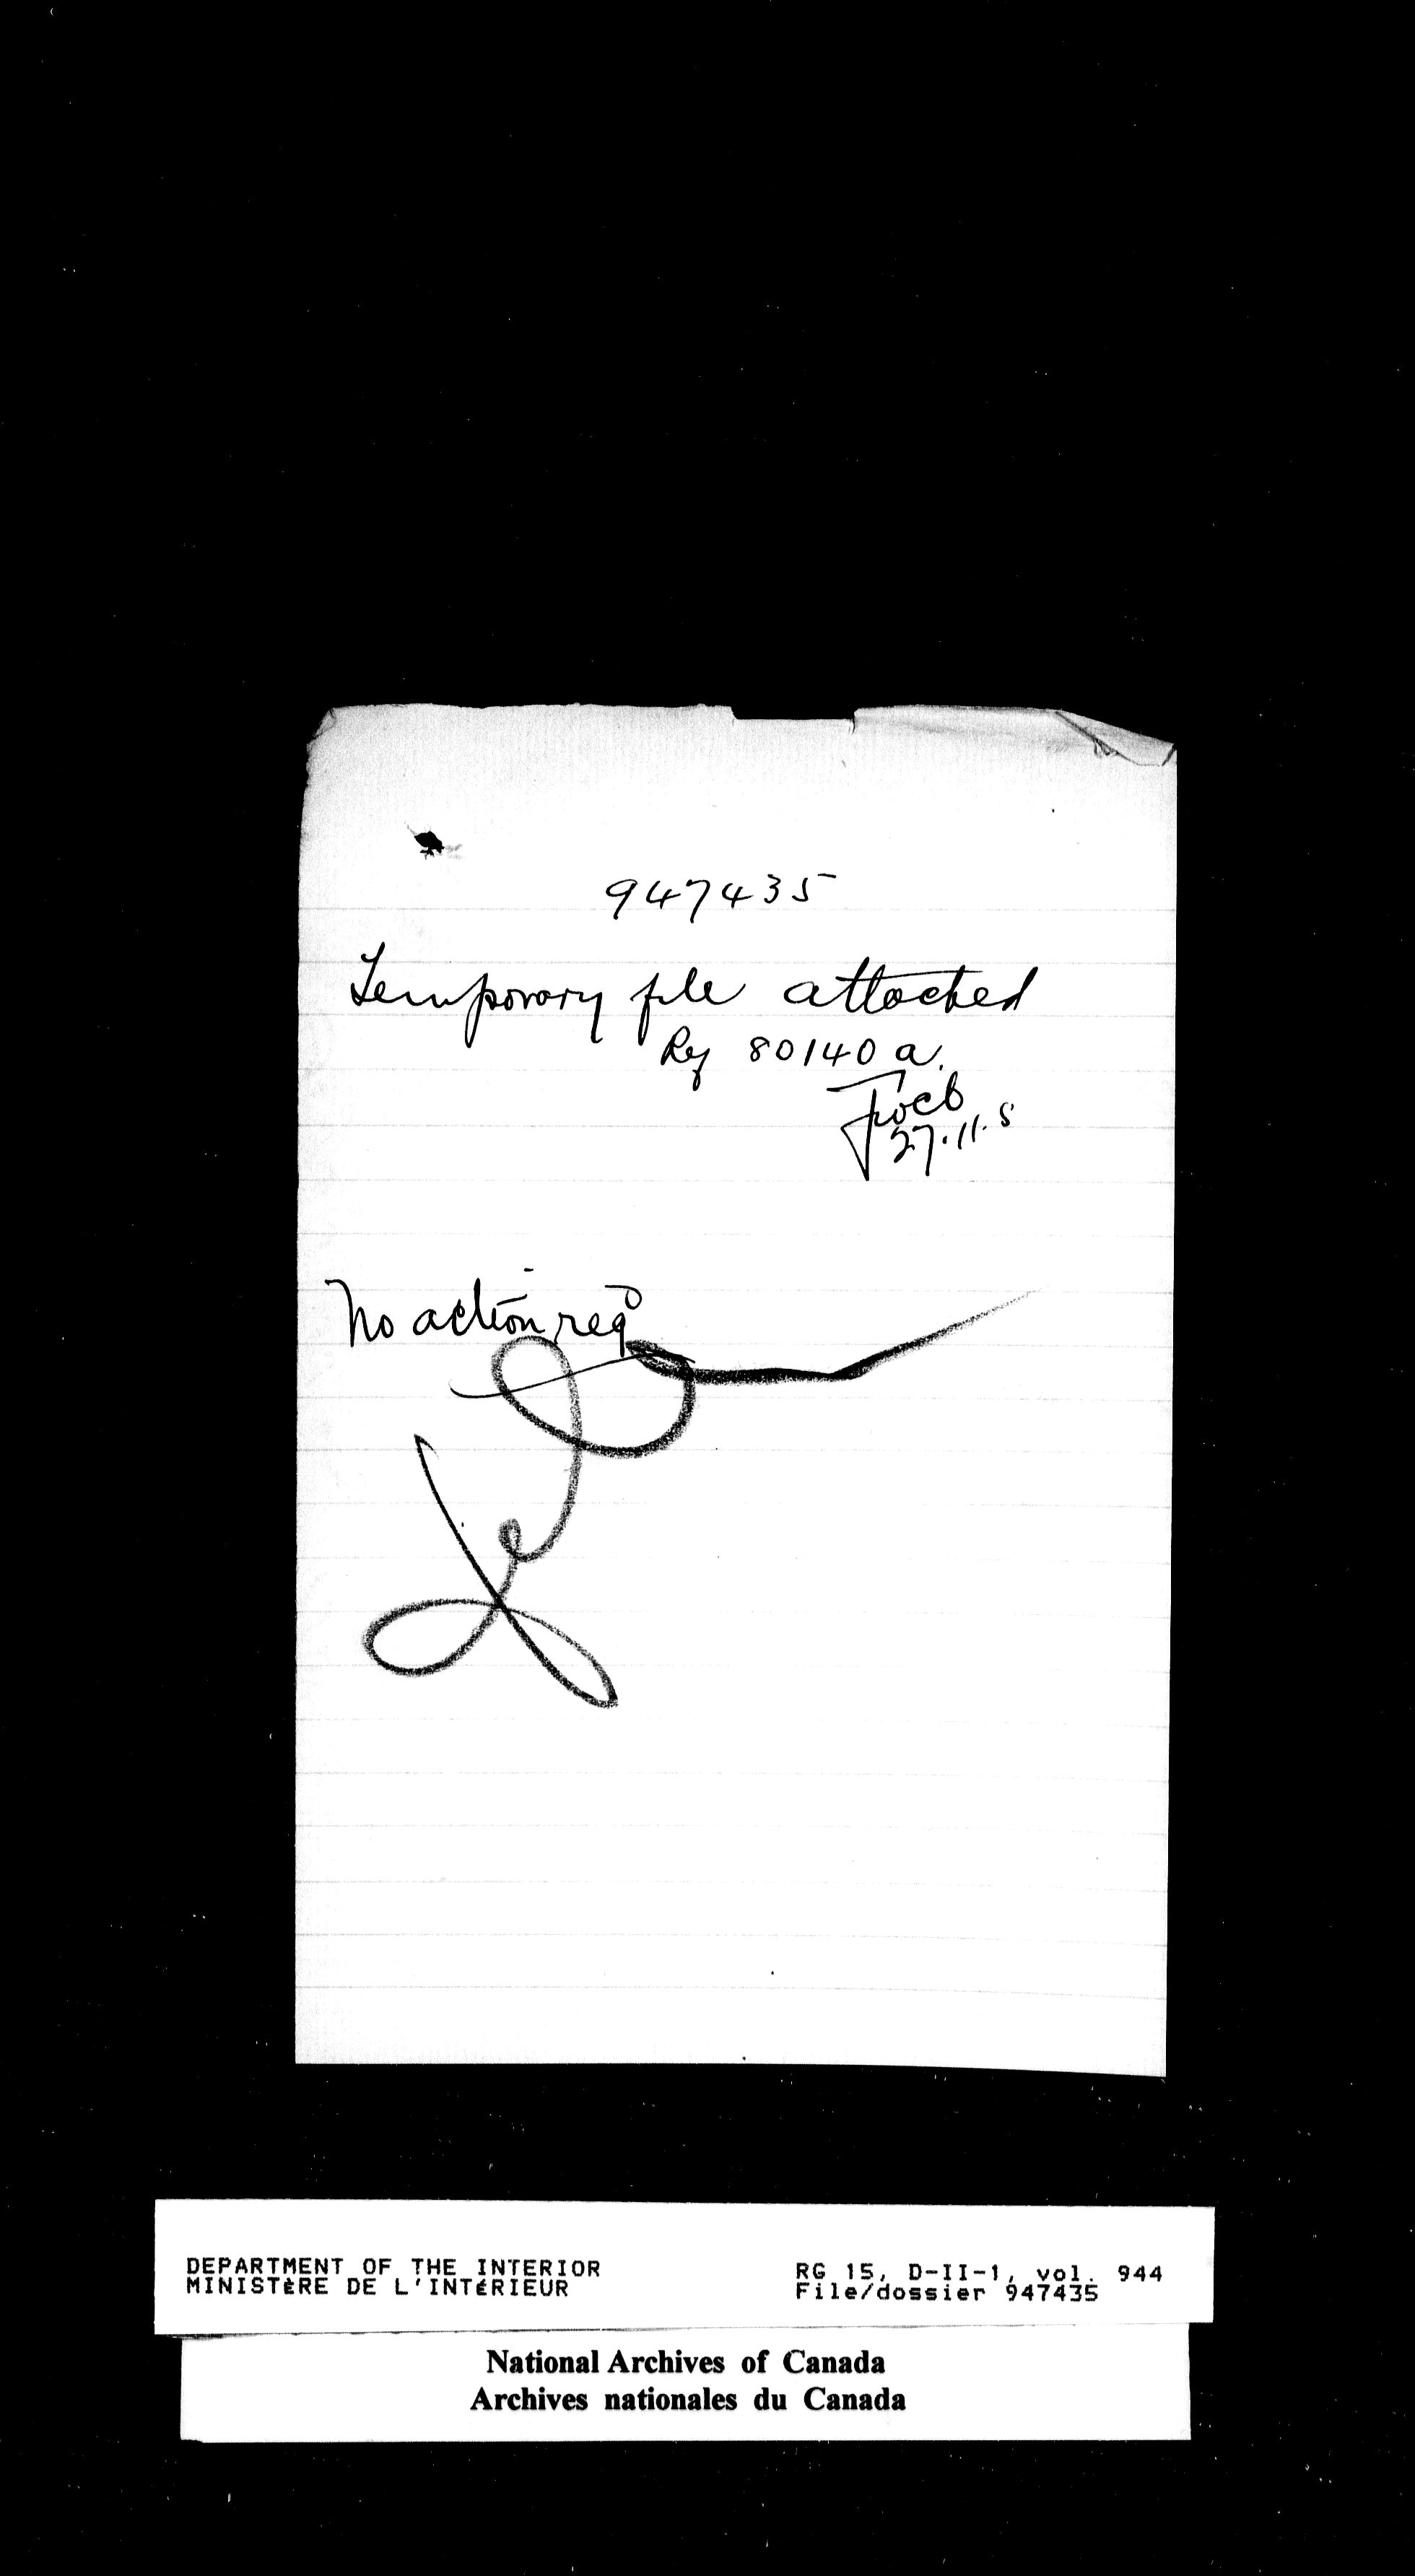 947435
Temporary file attached
Ref 80140 a.
27.11.8
No action reqd
DEPARTMENT OF THE INTERIOR
MINISTÈRE DE L'INTÉRIEUR
RG 15, D-II-1, vol. 944
File/dossier 947435
National Archives of Canada
Archives nationales du Canada